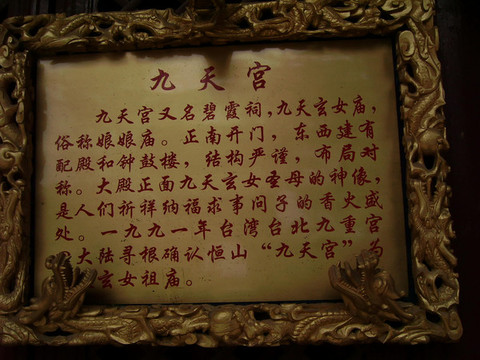 九天宫
九天宫又名碧霞祠,九天玄女庙,
俗称娘娘庙。正南开门,东西建有
配殿和钟鼓楼,结构严谨,布局对
称。大殿正面九天玄女圣母的神像,
是人们祈祥纳福求事问子的香火盛
处。一九九一年台湾台北九重宫
大陆寻根确认恒山“九天宫”为
玄女祖庙。